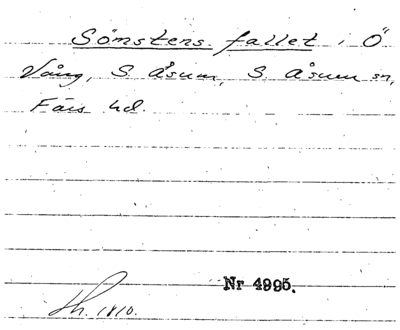 Sömstens fallet i Ö
Vång, S Åsum, S Åsum sn,
Färs hd.
Nr 4995.
Sk. 1810.